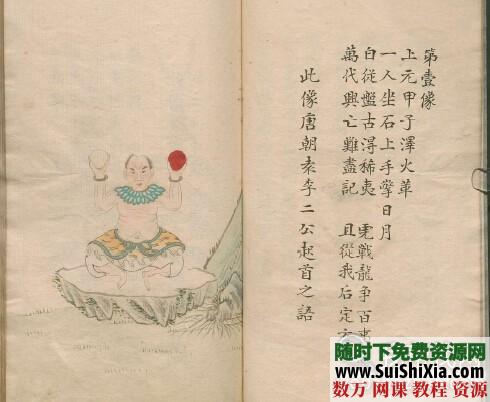 第壹像
上元甲子澤火革
一人坐石上手擎日月
自從盤古淂稀夷 虎戰龍争百事
萬代興亡難盡記 且從我后定
此像唐朝袁李二公起首之語
随时下免费资源网
www.SuiShiXia.com
数万 网课 教程 资源